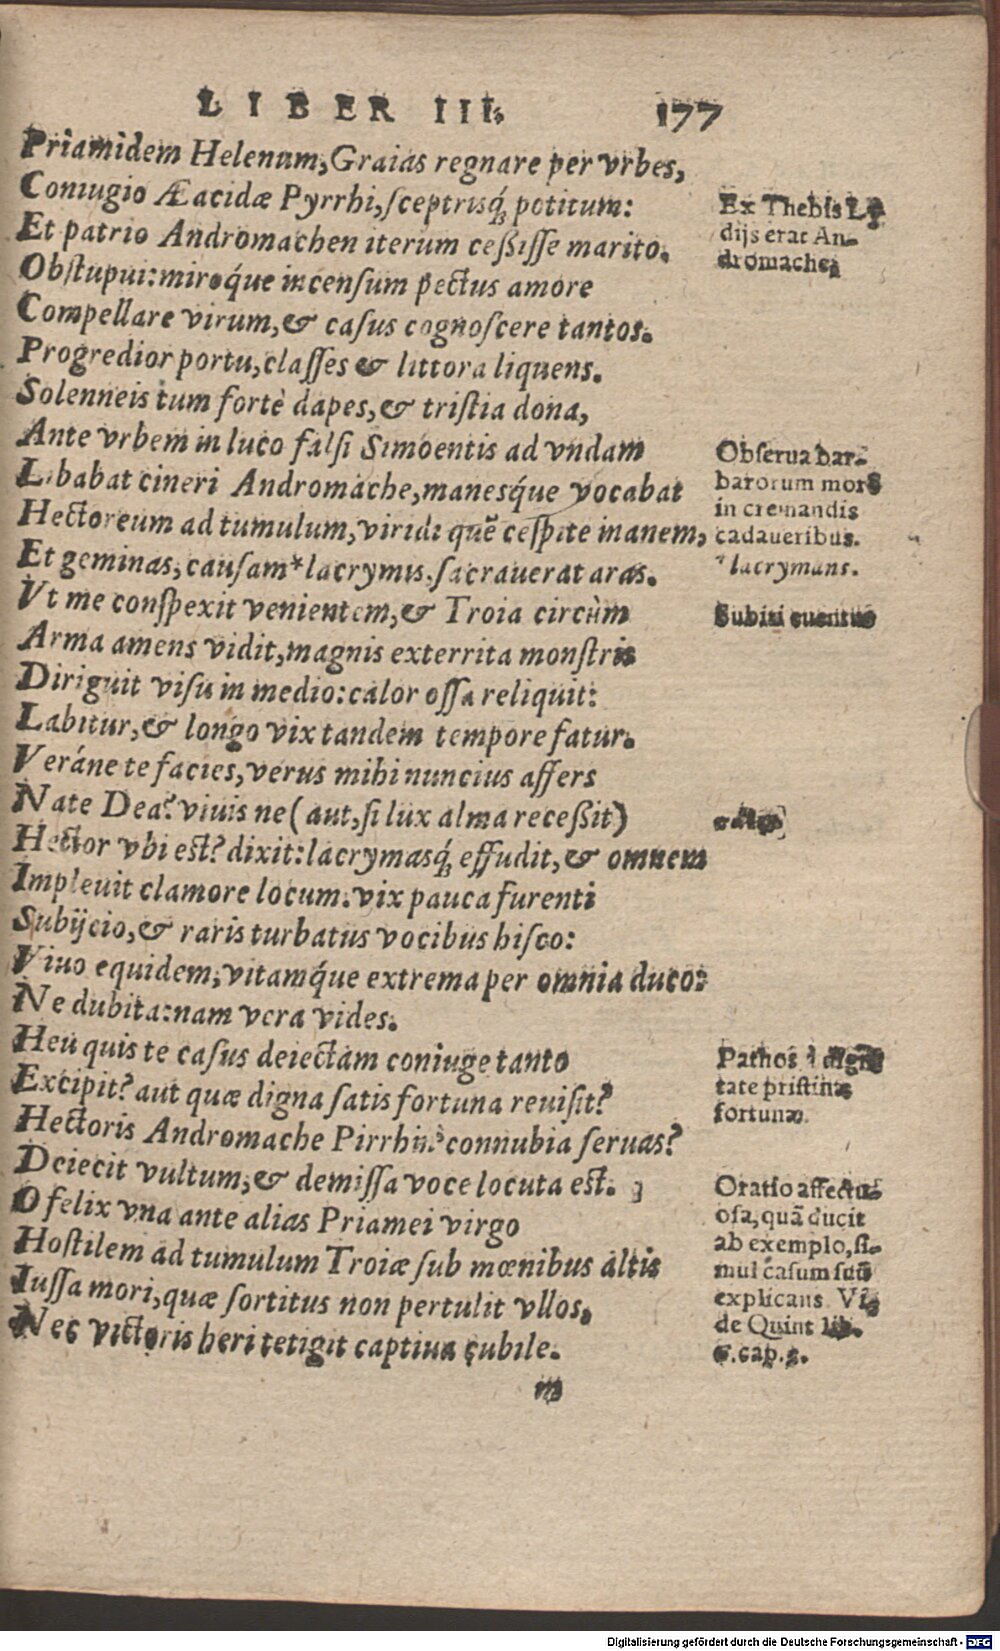 LIBER III. 177
Priamidem Helenum, Graias regnare per vrbes,
Coniugio Æacidæ Pyrrhi, sceptrisq́ʒ potitum:
Et patrio Andromachen iterum ceßisse marito.
Obstupui: miroq́ue incensum pectus amore
Compellare virum, & casus cognoscere tantos.
Progredior portu, classes & littora liquens.
Solenneis tum fortè dapes, & tristia dona,
Ante vrbem in luco falsi Simoentis ad vndam
Libabat cineri Andromache, manesq́ue vocabat
Hectoreum ad tumulum, viridi quẽ cespite inanem,
Et geminas, causam* lacrymis, sacrauerat aras.
Vt me conspexit venientem, & Troia circùm
Arma amens vidit, magnis exterrita monstris
Diriguit visu in medio: calor ossa reliquit:
Labitur, & longo vix tandem tempore fatur.
Veráne te facies, verus mihi nuncius affers
Nate Dea? viuis ne (aut, si lux alma receßit)
Hector vbi est? dixit: lacrymasq́ʒ effudit, & omnem
Impleuit clamore locum. vix pauca furenti
Subijcio, & raris turbatus vocibus hisco:
Viuo equidem, vitamq́ue extrema per omnia duco:
Ne dubita: nam vera vides.
Heu quis te casus deiectam coniuge tanto
Excipit? aut quæ digna satis fortuna reuisit?
Hectoris Andromache Pirrhin' connubia seruas?
Deiecit vultum, & demissa voce locuta est.
O felix vna ante alias Priamei virgo
Hostilem ad tumulum Troiæ sub mœnibus altis
Iussa mori, quæ sortitus non pertulit vllos,
Nec victoris heri tetigit captiua cubile.
m
Ex Thebis Ly
dijs erat An-
dromache,
Obserua bar-
barorum morẽ
in cremandis
cadaueribus.
* lacrymans.
Subiti euentus
Pathos à digni
tate pristinæ
fortunæ.
Oratio affectu-
osa, quã ducit
ab exemplo, si-
mul casum suũ
explicans Vi-
de Quint lib.
cap.
Digitalisierung gefördert durch die Deutsche Forschungsgemeinschaft - DFG